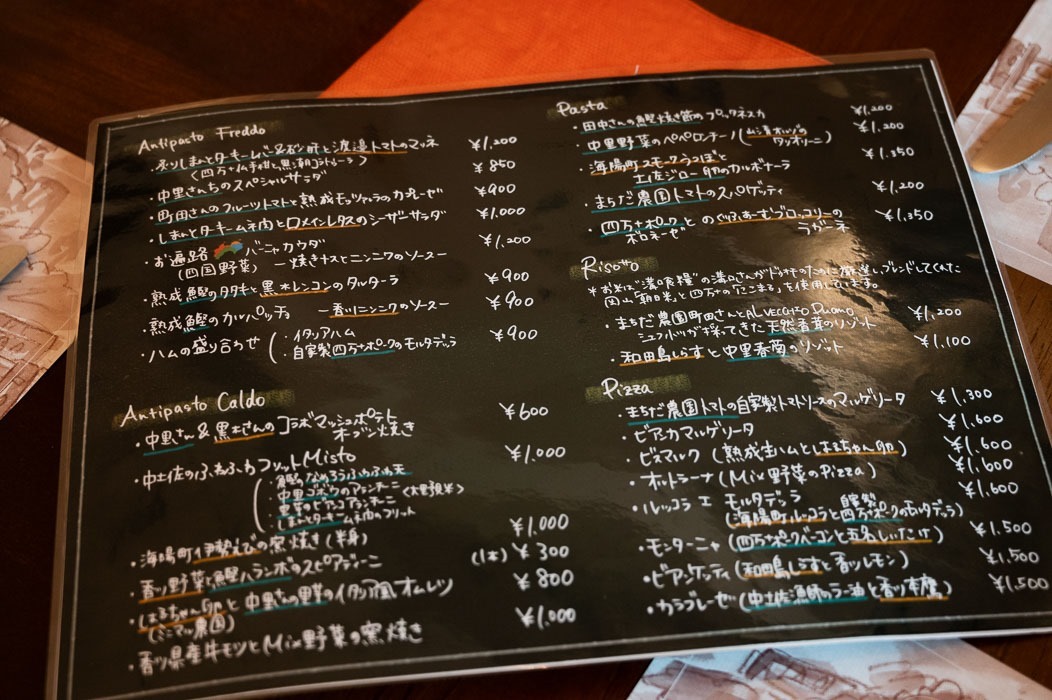 Antipasto Freddo
しまんとターキーレバー&砂肝と渡邊トマトのマッネ ¥1,200
中里さんちのスペシャルサラダ ¥850
町田さんのフルーツトマトと熟成モッツァラのカプレーゼ ¥900
しまんとターキームネ肉とロメインレタスのシーザーサラダ ¥1,000
お遍路 バーニャカウダ ¥1,200
(四国野菜) ー焼きナスとニンニクのソースー
熟成鰹のタタキと黒木レンコンのタルターラ ¥900
熟成鰹のカルパッチョ ー香川ニンニクのソースー ¥900
ハムの盛り合わせ ・イタリアハム ¥900
・自家製四万十ポークのモルタデッラ
Antipasto Caldo
・中里さん&黒木さんのコラボマッシュポテト ¥600
オーブン焼き
・中土佐のふわふわフリットMisto ¥1,000
鰹のなめろうふわふわ天
・海陽町伊勢えびの窯焼き(半身) ¥1,000
・香川野菜と鰹ハランボのスピアディーニ (1本) ¥300
・はるちゃん卵と中里さんの里芋のイタリア風オムレツ ¥800
(ミニマル農園)
・香川県産牛モツとMix野菜の窯焼き ¥1,000
Pasta
・田中さんの鰹焼き節のプッタネスカ ¥1,200
・中里野菜のペペロンチーノ ¥1,200
・海陽町スモークうつぼと ¥1,350
土佐ジロー卵のカルボナーラ
・まちだ農園トマトのスパゲッティ ¥1,200
・四万十ポークとのぐちふぁーむブロッコリーの ¥1,350
ボロネーゼ
Risotto
岡山"朝日米"と四万十の"にこまる"を使用しています。
・まちだ農園町田さんとAL VECCHIO Duomo ¥1,200
シェフ 天然香茸のリゾット
・和田島しらすと中里春菊のリゾット ¥1,100
Pizza
・まちだ農園トマトの自家製トマトソースのマルゲリータ ¥1,300
・ビアンカマルゲリータ ¥1,600
・ビスマルク(熟成生ハムとはるちゃん卵) ¥1,600
・オルトラーナ(Mix野菜のPizza) ¥1,600
・ルッコラ エ モルタデッラ 自家製 ¥1,600
(海陽町ルッコラと四万十ポークのモルタデラ)
・モンターニャ(四万十ポークベーコンと五名しいたけ) ¥1,500
・ビアンケッティ(和田島しらすと香川レモン) ¥1,500
・カラブレーゼ(中土佐漁師のラー油と香川本鷹) ¥1,500